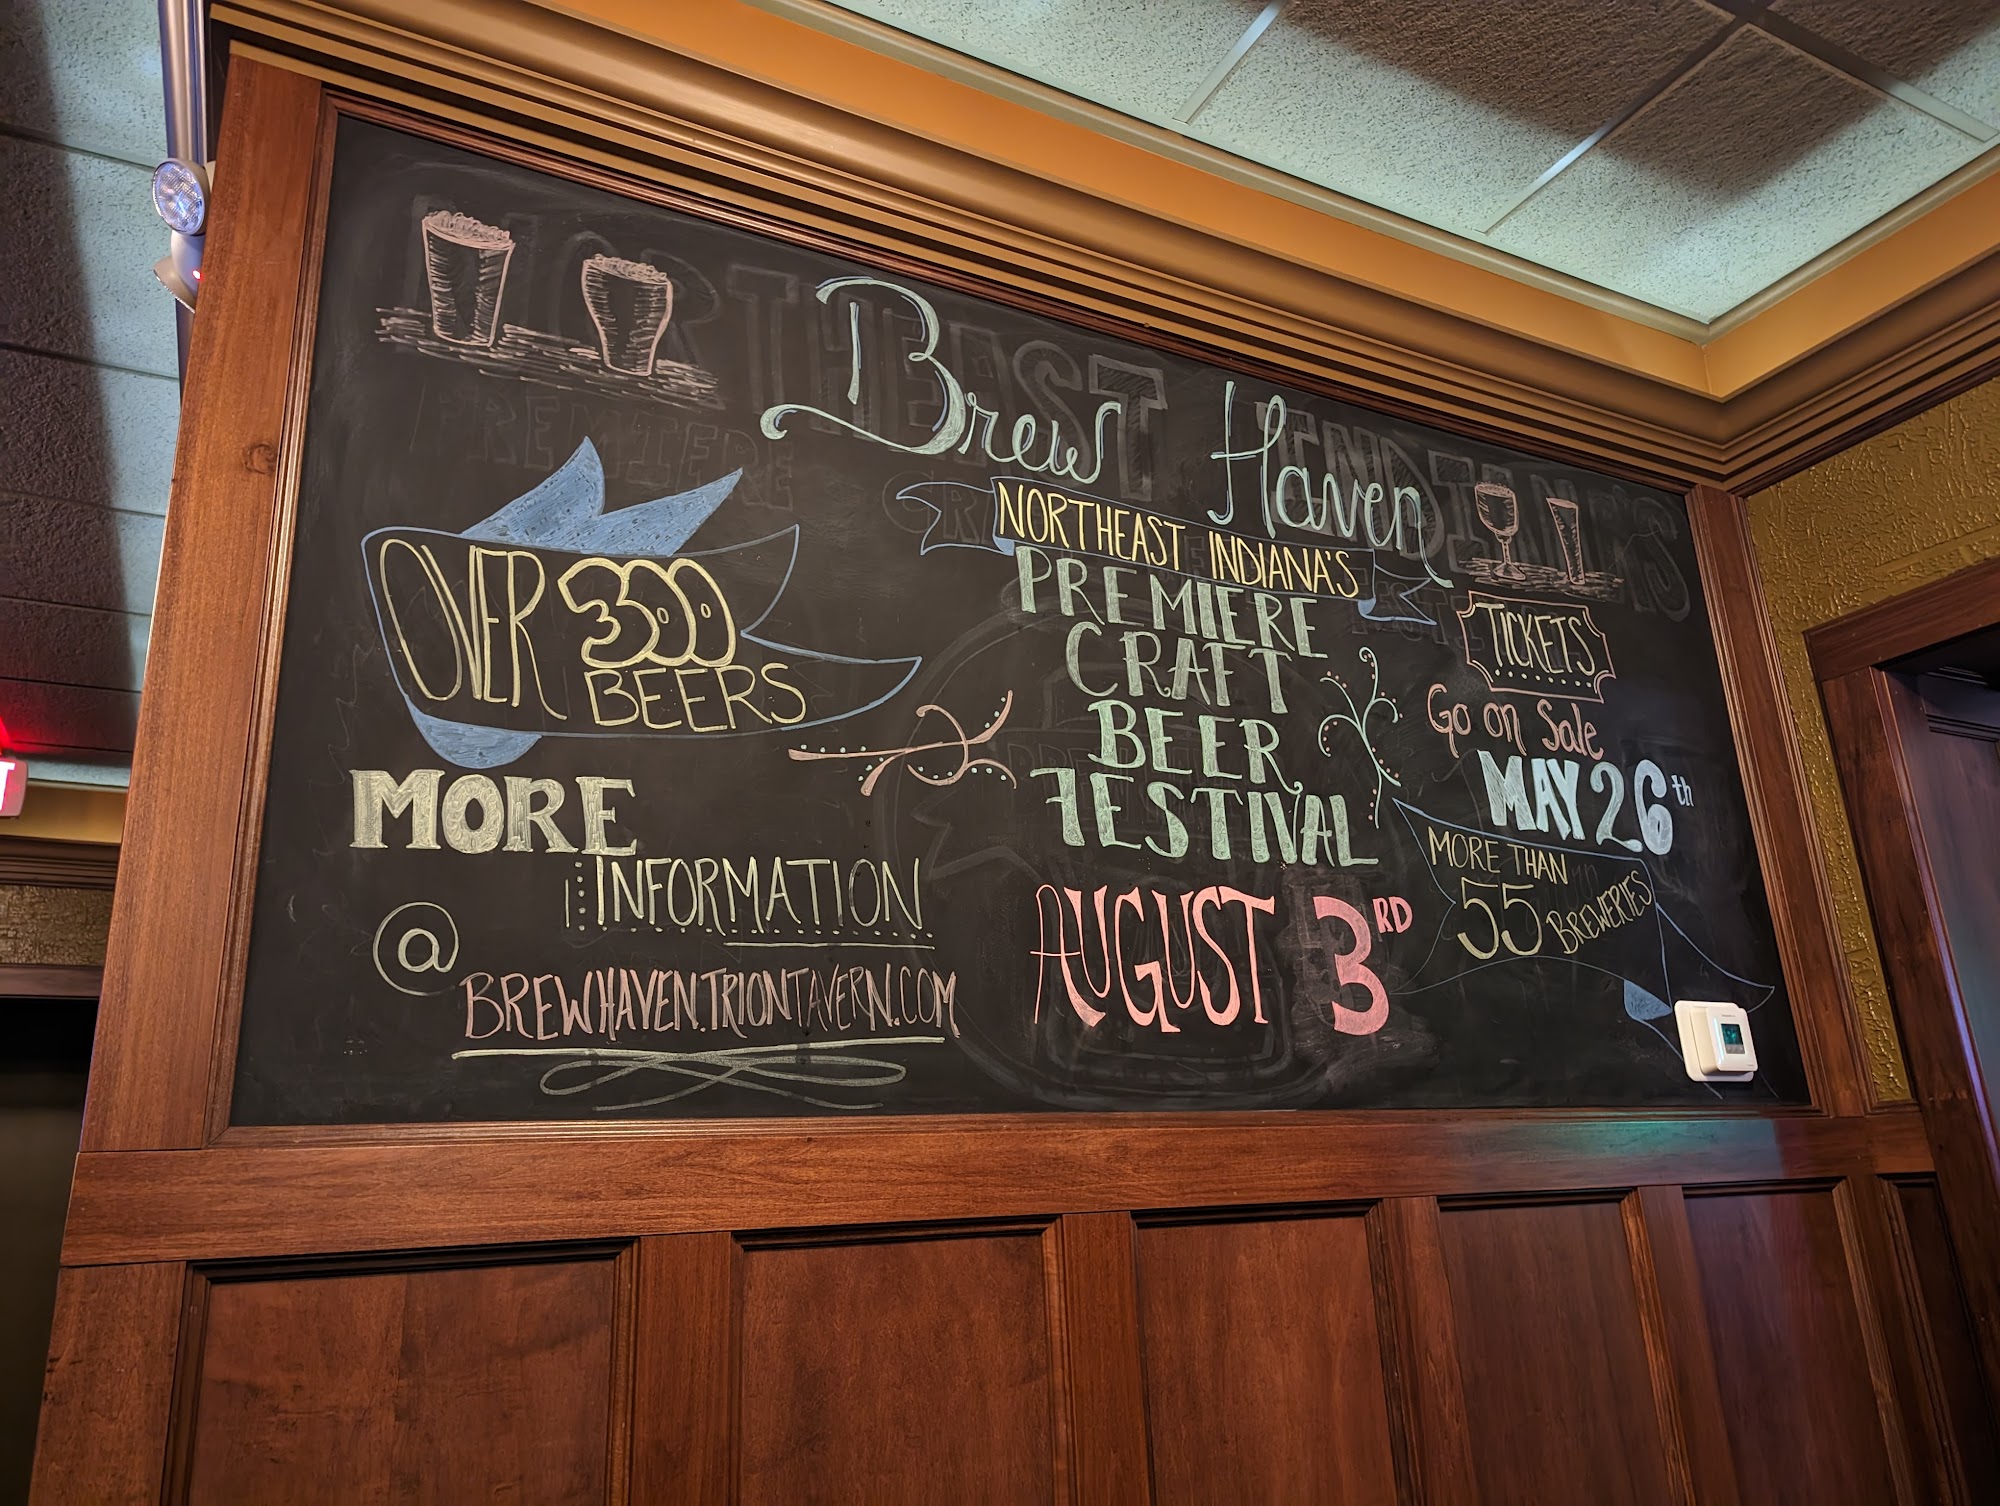 Brew Haven
NORTHEAST INDIANA'S
PREMIERE
CRAFT
BEER
FESTIVAL
AUGUST 3RD
OVER 300
BEERS
MORE
INFORMATION
@
BREWHAVEN.TRIONTAVERN.COM
TICKETS
Go on Sale
MAY 26th
MORE THAN
55 BREWERIES
NORTHEAST INDIANA'S
PREMIERE